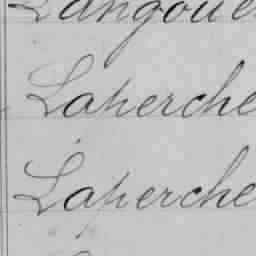 Langoue
Laperche
Laperche